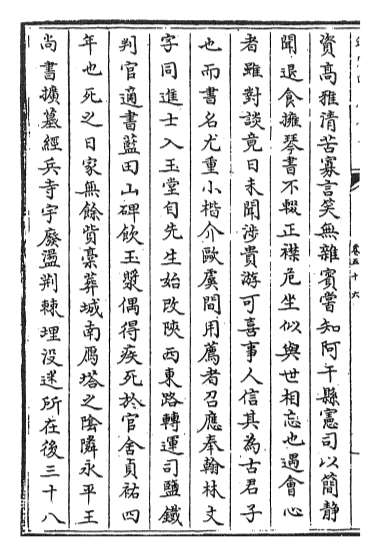 資髙雅清苦寡言笑無雜賓嘗知阿干縣憲司以簡静
聞退食擁琴書不輟正襟危坐似與世相忘也遇會心
者雖對談竟日未聞涉貴游可喜事人信其為古君子
也而書名尤重小楷介歐虞間用薦者召應奉翰林文
字同進士入玉堂旬先生始改陜西東路轉運司鹽鐵
判官適書藍田山碑飲玉漿偶得疾死於官舍貞祐四
年也死之日家無餘貲槀葬城南鴈塔之陰隣永平王
尚書擴墓經兵寺宇廢盪荆棘埋没迷所在後三十八
卷五十六